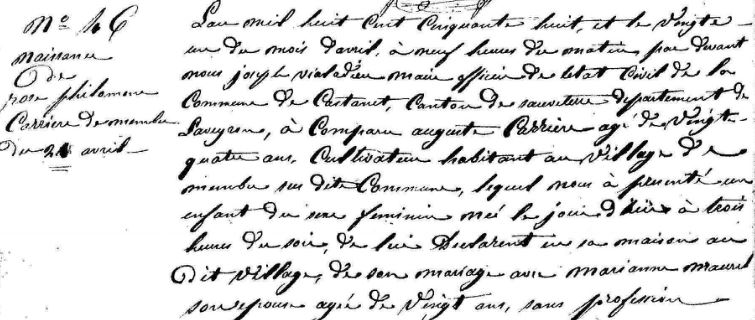 No 46
naissance
de
rose philomene
Carriere de membre
du 21 avril
Lan mil huit cent cinquante huit, et le vingte
un du mois davril, à neuf heures du matin, par devant
nous joseph vialadieu maire officier de letat civil de la
Commune de Castanet, Canton de sauveterre departement de
Laveyron, à Comparu auguste Carriere agé de vingt
quatre ans, Cultivateur habitant au village de
membre sus dite Commune, lequel nous à presenté un
enfant du sexe feminin née le jour d'hier à trois
heures du soir, de lui declarent en sa maison au
Dit village, de son mariage avec marianne maurel
son epouse agée de vingt ans, sans profession